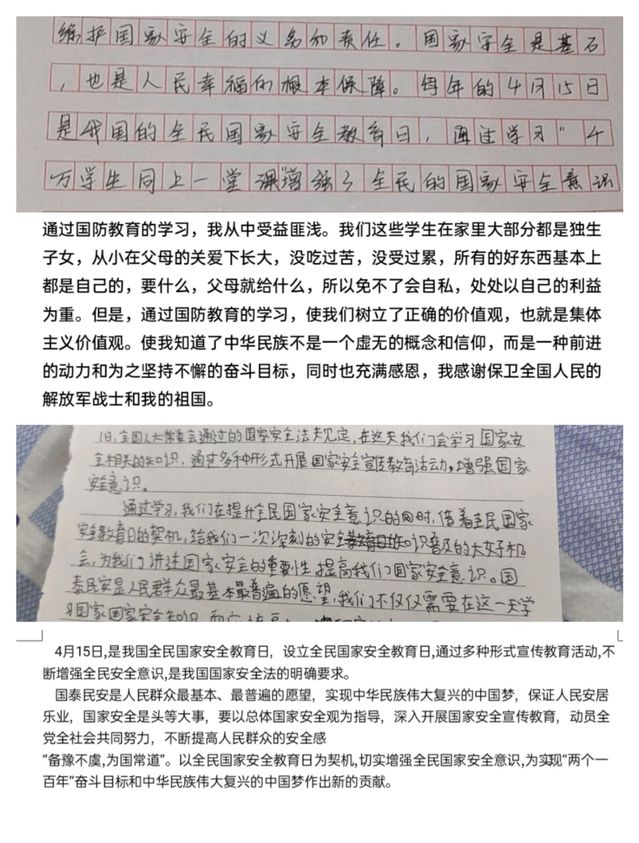 维护国家安全的义务和责任。国家安全是基石
，也是人民幸福的根本保障。每年的4月15日
是我国的全民国家安全教育日，通过学习“4
万学生同上一堂课"增强了全民的国家安全意识
通过国防教育的学习，我从中受益匪浅。我们这些学生在家里大部分都是独生
子女，从小在父母的关爱下长大，没吃过苦，没受过累，所有的好东西基本上
都是自己的，要什么，父母就给什么，所以免不了会自私，处处以自己的利益
为重。但是，通过国防教育的学习，使我们树立了正确的价值观，也就是集体
主义价值观。使我知道了中华民族不是一个虚无的概念和信仰，而是一种前进
的动力和为之坚持不懈的奋斗目标，同时也充满感恩，我感谢保卫全国人民的
解放军战士和我的祖国。
日,全国人大常委会通过的国家安全法规定,在这天我们会学习国家安
全相关的知识,通过多种形式开展国家安全宣传教育活动,增强国家
安全意识。
通过学习,我们在提升全民国家安全意识的同时,借着全民国家
安全教育日的契机,给我们一次深刻的安全识普及的大好机
会,为我们讲述国家安全的重要性,提高我们国家安全意识。国
泰民安是人民群众最基本最普遍的愿望,我们不仅仅需要在这一天学
习国家国家安全知识
4月15日,是我国全民国家安全教育日，设立全民国家安全教育日,通过多种形式宣传教育活动,不
断增强全民安全意识,是我国国家安全法的明确要求。
国泰民安是人民群众最基本、最普遍的愿望，实现中华民族伟大复兴的中国梦，保证人民安居
乐业，国家安全是头等大事，要以总体国家安全观为指导，深入开展国家安全宣传教育，动员全
党全社会共同努力，不断提高人民群众的安全感
“备豫不虞,为国常道”。以全民国家安全教育日为契机,切实增强全民国家安全意识,为实现“两个一
百年”奋斗目标和中华民族伟大复兴的中国梦作出新的贡献。